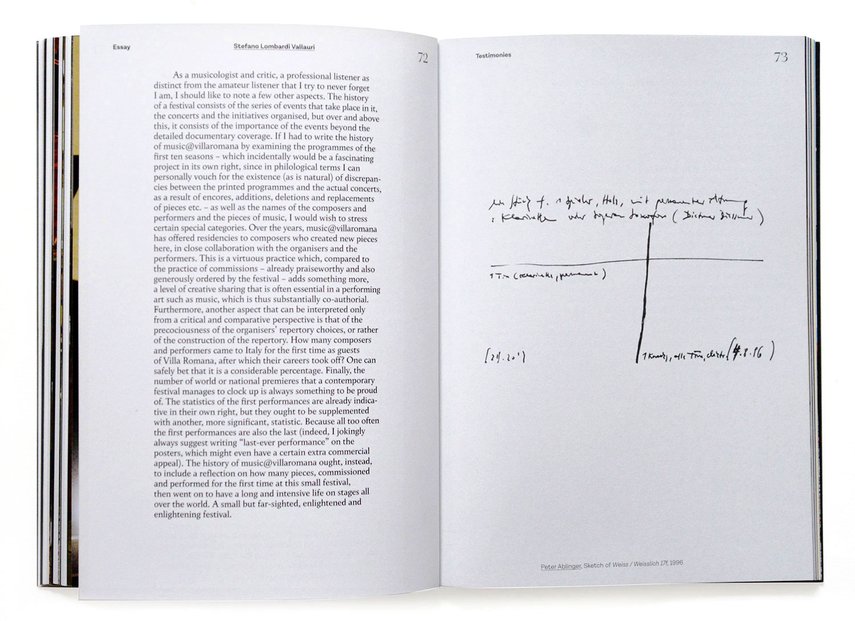 Essay
Stefano Lombardi Vallauri
72
As a musicologist and critic, a professional listener as
distinct from the amateur listener that I try to never forget
I am, I should like to note a few other aspects. The history
of a festival consists of the series of events that take place in it,
the concerts and the initiatives organised, but over and above
this, it consists of the importance of the events beyond the
detailed documentary coverage. If I had to write the history
of music@villaromana by examining the programmes of the
first ten seasons – which incidentally would be a fascinating
project in its own right, since in philological terms I can
personally vouch for the existence (as is natural) of discrepan-
cies between the printed programmes and the actual concerts,
as a result of encores, additions, deletions and replacements
of pieces etc. – as well as the names of the composers and
performers and the pieces of music, I would wish to stress
certain special categories. Over the years, music@villaromana
has offered residencies to composers who created new pieces
here, in close collaboration with the organisers and the
performers. This is a virtuous practice which, compared to
the practice of commissions – already praiseworthy and also
generously ordered by the festival – adds something more,
a level of creative sharing that is often essential in a performing
art such as music, which is thus substantially co-authorial.
Furthermore, another aspect that can be interpreted only
from a critical and comparative perspective is that of the
precociousness of the organisers' repertory choices, or rather
of the construction of the repertory. How many composers
and performers came to Italy for the first time as guests
of Villa Romana, after which their careers took off? One can
safely bet that it is a considerable percentage. Finally, the
number of world or national premieres that a contemporary
festival manages to clock up is always something to be proud
of. The statistics of the first performances are already indica-
tive in their own right, but they ought to be supplemented
with another, more significant, statistic. Because all too often
the first performances are also the last (indeed, I jokingly
always suggest writing “last-ever performance” on the
posters, which might even have a certain extra commercial
appeal). The history of music@villaromana ought, instead,
to include a reflection on how many pieces, commissioned
and performed for the first time at this small festival,
then went on to have a long and intensive life on stages all
over the world. A small but far-sighted, enlightened and
enlightening festival.
Testimonies
73
f. 1 Spieler, mit permanenter
Klarinette oder (Dietmar
1 Ton (Klarinette, permanent)
1
Peter Ablinger, Sketch of Weiss / Weisslich 17f, 1996